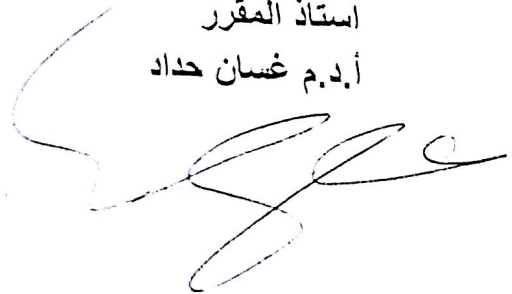 استاذ المقرر
أ.د.م غسان حداد